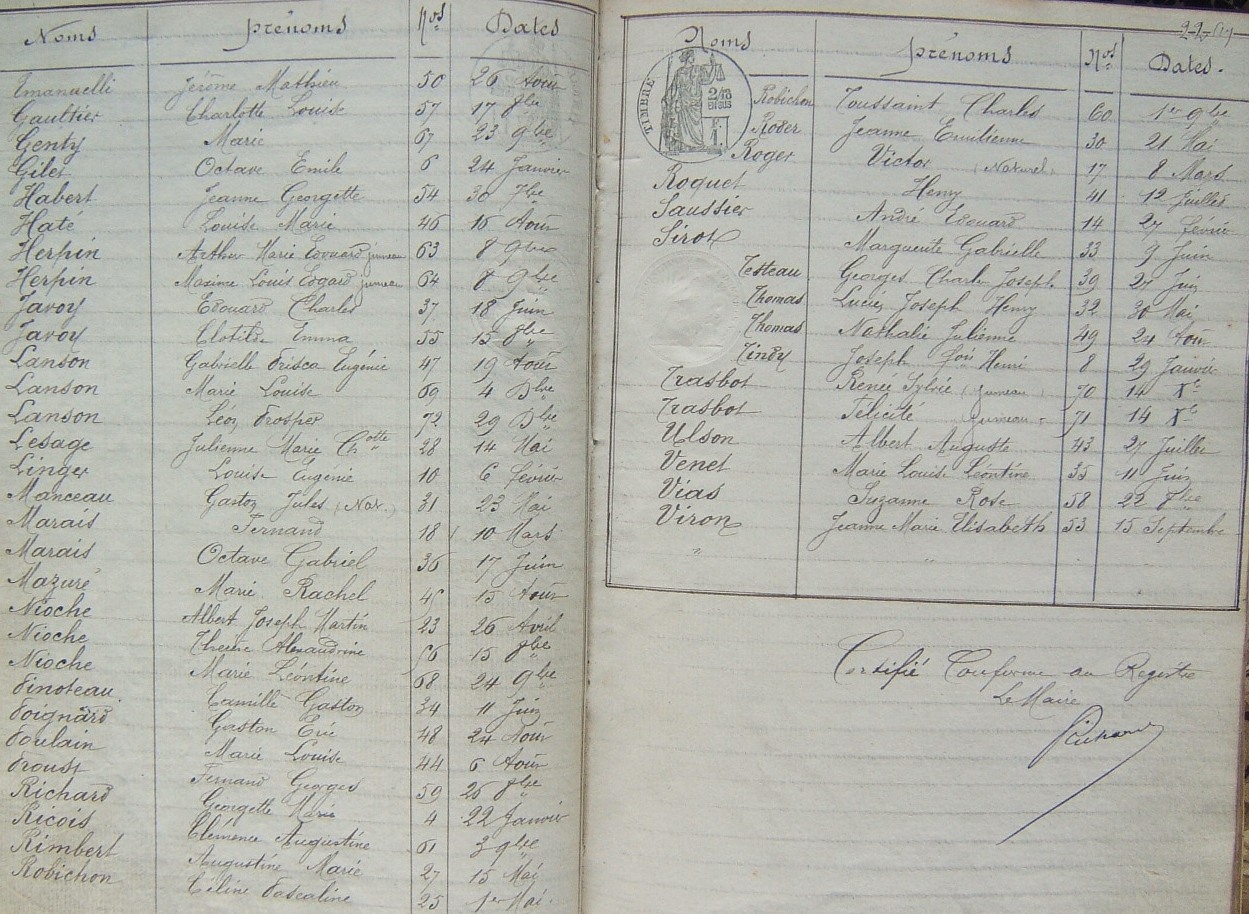 Noms Prénoms Nos Dates
Emanuelli Jérôme Mathieu 50 26 Aout
Gaultier Charlotte Louise 57 17 8bre
Genty Marie 67 23 9bre
Gilet Octave Emile 6 24 Janvier
Habert Jeanne Georgette 54 30 7bre
Haté Louise Marie 46 16 Aout
Herpin Arthur Marie Edouard jumeau 63 8 9bre
Herpin Maxime Louis Edgard jumeau 64 8 9bre
Javoy Edouard Charles 37 18 Juin
Javoy Clotilde Emma 55 15 8bre
Lanson Gabrielle Prisca Eugénie 47 19 Aout
Lanson Marie Louise 69 4 Dbre
Lanson Léon Prosper 72 29 Dbre
Lesage Julienne Marie Chotte 28 14 Mai
Linger Louise Eugénie 10 6 Février
Manceau Gaston Jules (Nat.) 31 23 Mai
Marais Fernand 18 10 Mars
Marais Octave Gabriel 36 17 Juin
Mazuré Marie Rachel 45 15 Aout
Nioche Albert Joseph Martin 23 26 Avril
Nioche Therese Alexandrine 56 15 8bre
Nioche Marie Léontine 68 24 9bre
Pinoteau Camille Gaston 34 11 Juin
Poignard Gaston 48 24 Aout
Poulain Marie Louise 44 6 Aout
Proust Fernand Georges 59 26 8bre
Richard Georgette Marie 4 22 Janvier
Ricois Clémence Augustine 61 3 9bre
Rimbert Augustine Marie 27 15 Mai
Robichon Céline Pascaline 25 1er Mai
Noms Prénoms Nos Dates.
TIMBRE 2/10 EN SUS
Robichon Toussaint Charles 60 1er 9bre
Roder Jeanne Emilienne 30 21 Mai
Roger Victor (Naturel) 17 8 Mars
Roquet Henry 41 12 Juillet
Saussier André Edouard 14 27 Février
Sirot Marguerite Gabrielle 33 9 Juin
Testeau Georges Charles Joseph 39 27 Juin
Thomas Lucien Joseph Henry 32 30 Mai
Thomas Nathalie Julienne 49 24 Aout
Tindy Joseph Henri 8 29 Janvier
Trasbot Renée Sylvie (jumeau) 70 14 Xe
Trasbot Félicité jumeau 71 14 Xe
Ulson Albert Auguste 43 27 Juillet
Venet Marie Louise Léontine 35 11 Juin
Vias Suzanne Rose 58 22 8bre
Viron Jeanne Marie Elisabeth 53 15 Septembre
" " "
Certifié Conforme au Registre
Le Maire